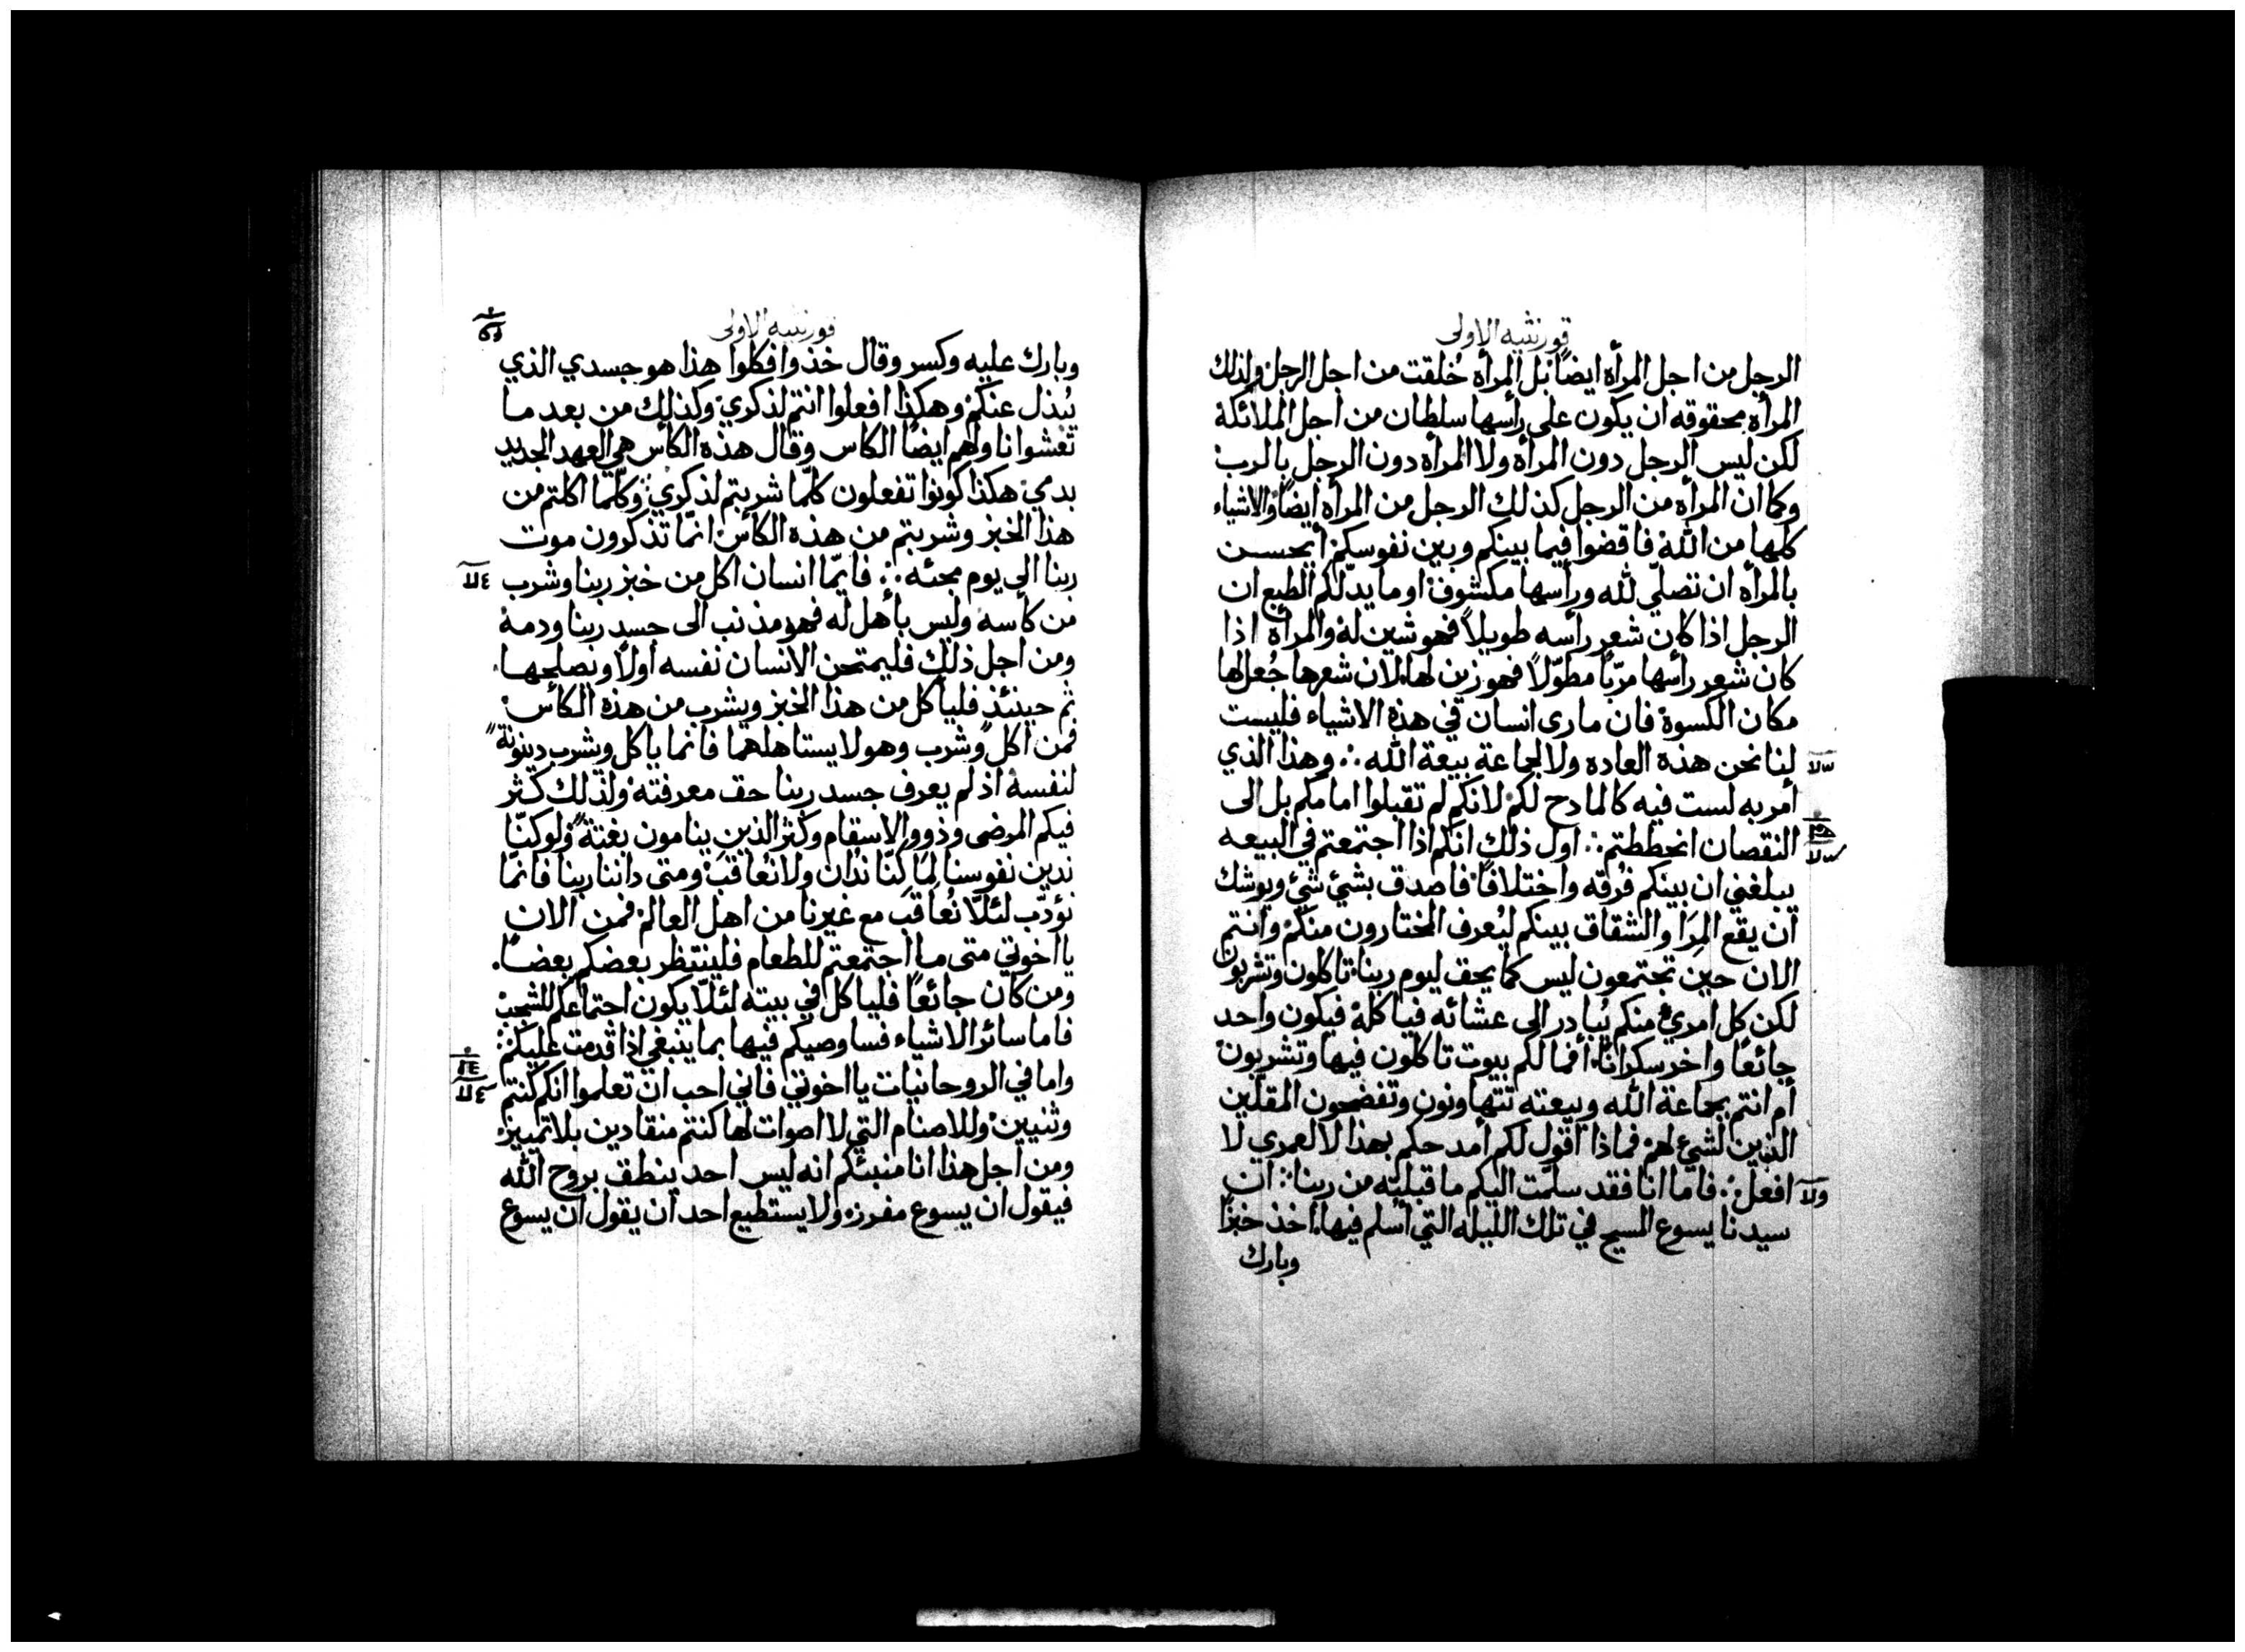 قورنثيه الاولى
الرجل من اجل المرأه ايضاً بل المرأه خُلقت من اجل الرجل ولذلك
المرأه محقوقه ان يكون على رأسها سلطان من اجل الملائكة
لكن ليس الرجل دون المرأه ولا المرأه دون الرجل بالرب
وكما ان المرأه من الرجل كذلك الرجل من المرأه ايضاً والاشياء
كلها من الله فاقضوا فيما بينكم وبين نفوسكم أيحسن
بالمرأه ان تصلّي لله ورأسها مكشوف او ما يدلّكم الطبع ان
الرجل اذا كان شعر رأسه طويلاً فهو شين له والمرأه اذا
كان شعر رأسها مربّاً مطوّلاً فهو زين لها لان شعرها جُعل لها
مكان الكسوة فان مارى انسان في هذه الاشياء فليست
لنا نحن هذه العاده ولا لجماعة بيعة الله ∴ وهذا الذي
أمر به لست فيه كالمادح لكم لانكم لم تقبلوا امامكم بل الى
النقصان انحططتم ∴ اول ذلك انكم اذا اجتمعتم في البيعه
يبلغني ان بينكم فُرقه واختلافاً فاصدق بشئ شئ ويوشك
ان يقع المِرَا والشقاق بينكم ليُعرف المختارون منكم وانتم
الان حين تجتمعون ليس كما يحق ليوم ربنا تاكلون وتشربون
لكن كل امرئ منكم يُبادر الى عشائه فياكله فيكون واحد
جائعًا واخر سكرانًا أفما لكم بيوت تاكلون فيها وتشربون
أم انتم بجماعة الله وبيعته تتهاونون وتفضحون المقلّين
الذين لا شئ لهم فماذا اقول لكم أمدحكم بهذا لا لعمري لا
افعل ∴ فاما انا فقد سلّمت اليكم ما قبلته من ربنا ∴ ان
سيدنا يسوع المسيح في تلك الليله التي اسلم فيها اخذ خبزًا
وبارك
قورنثيه الاولى
وبارك عليه وكسر وقال خذوا فكلوا هذا هو جسدي الذي
يُبذل عنكم وهكذا افعلوا انتم لذكري وكذلك من بعد ما
تعشوا ناولهم ايضًا الكاس وقال هذه الكأس هي العهد الجديد
بدمي هكذا كونوا تفعلون كلّما شربتم لذكري وكلّما اكلتم من
هذا الخبز وشربتم من هذه الكأس انّما تذكرون موت
ربنا الى يوم مجئه ∴ فايّما انسان اكل من خبز ربنا وشرب
من كأسه وليس بأهل له فهو مذنب الى جسد ربنا ودمه
ومن اجل ذلك فليمتحن الانسان نفسه اولاً ويصلحها
ثم حينئذ فليأكل من هذا الخبز ويشرب من هذه الكأس
فمن اكل وشرب وهو لا يستاهلهما فانما ياكل ويشرب دينونة
لنفسه اذ لم يعرف جسد ربنا حق معرفته ولذلك كثر
فيكم المرضى وذوو الاسقام وكثر الذين ينامون بغتة ولو كنّا
ندين نفوسنا لما كنّا نُدان ولا نُعاقب ومتى داننا ربنا فانمّا
نؤدّب لئلّا نُعاقب مع غيرنا من اهل العالم فمن الان
يا اخوتي متى ما اجتمعتم للطعام فلينتظر بعضكم بعضاً
ومن كان جائعاً فلياكل في بيته لئلّا يكون اجتماعكم للشجب
فاما سائر الاشياء فساوصيكم فيها بما ينبغي اذا قدمت عليكم
واما في الروحانيات يا اخوتي فاني احب ان تعلموا انكم كنتم
وثنيين وللاصنام التي لا اصوات لها كنتم منقادين بلا تمييز
ومن اجل هذا انا منبئكم انه ليس احد ينطق بروح الله
فيقول ان يسوع مفرز ولا يستطيع احد ان يقول ان يسوع